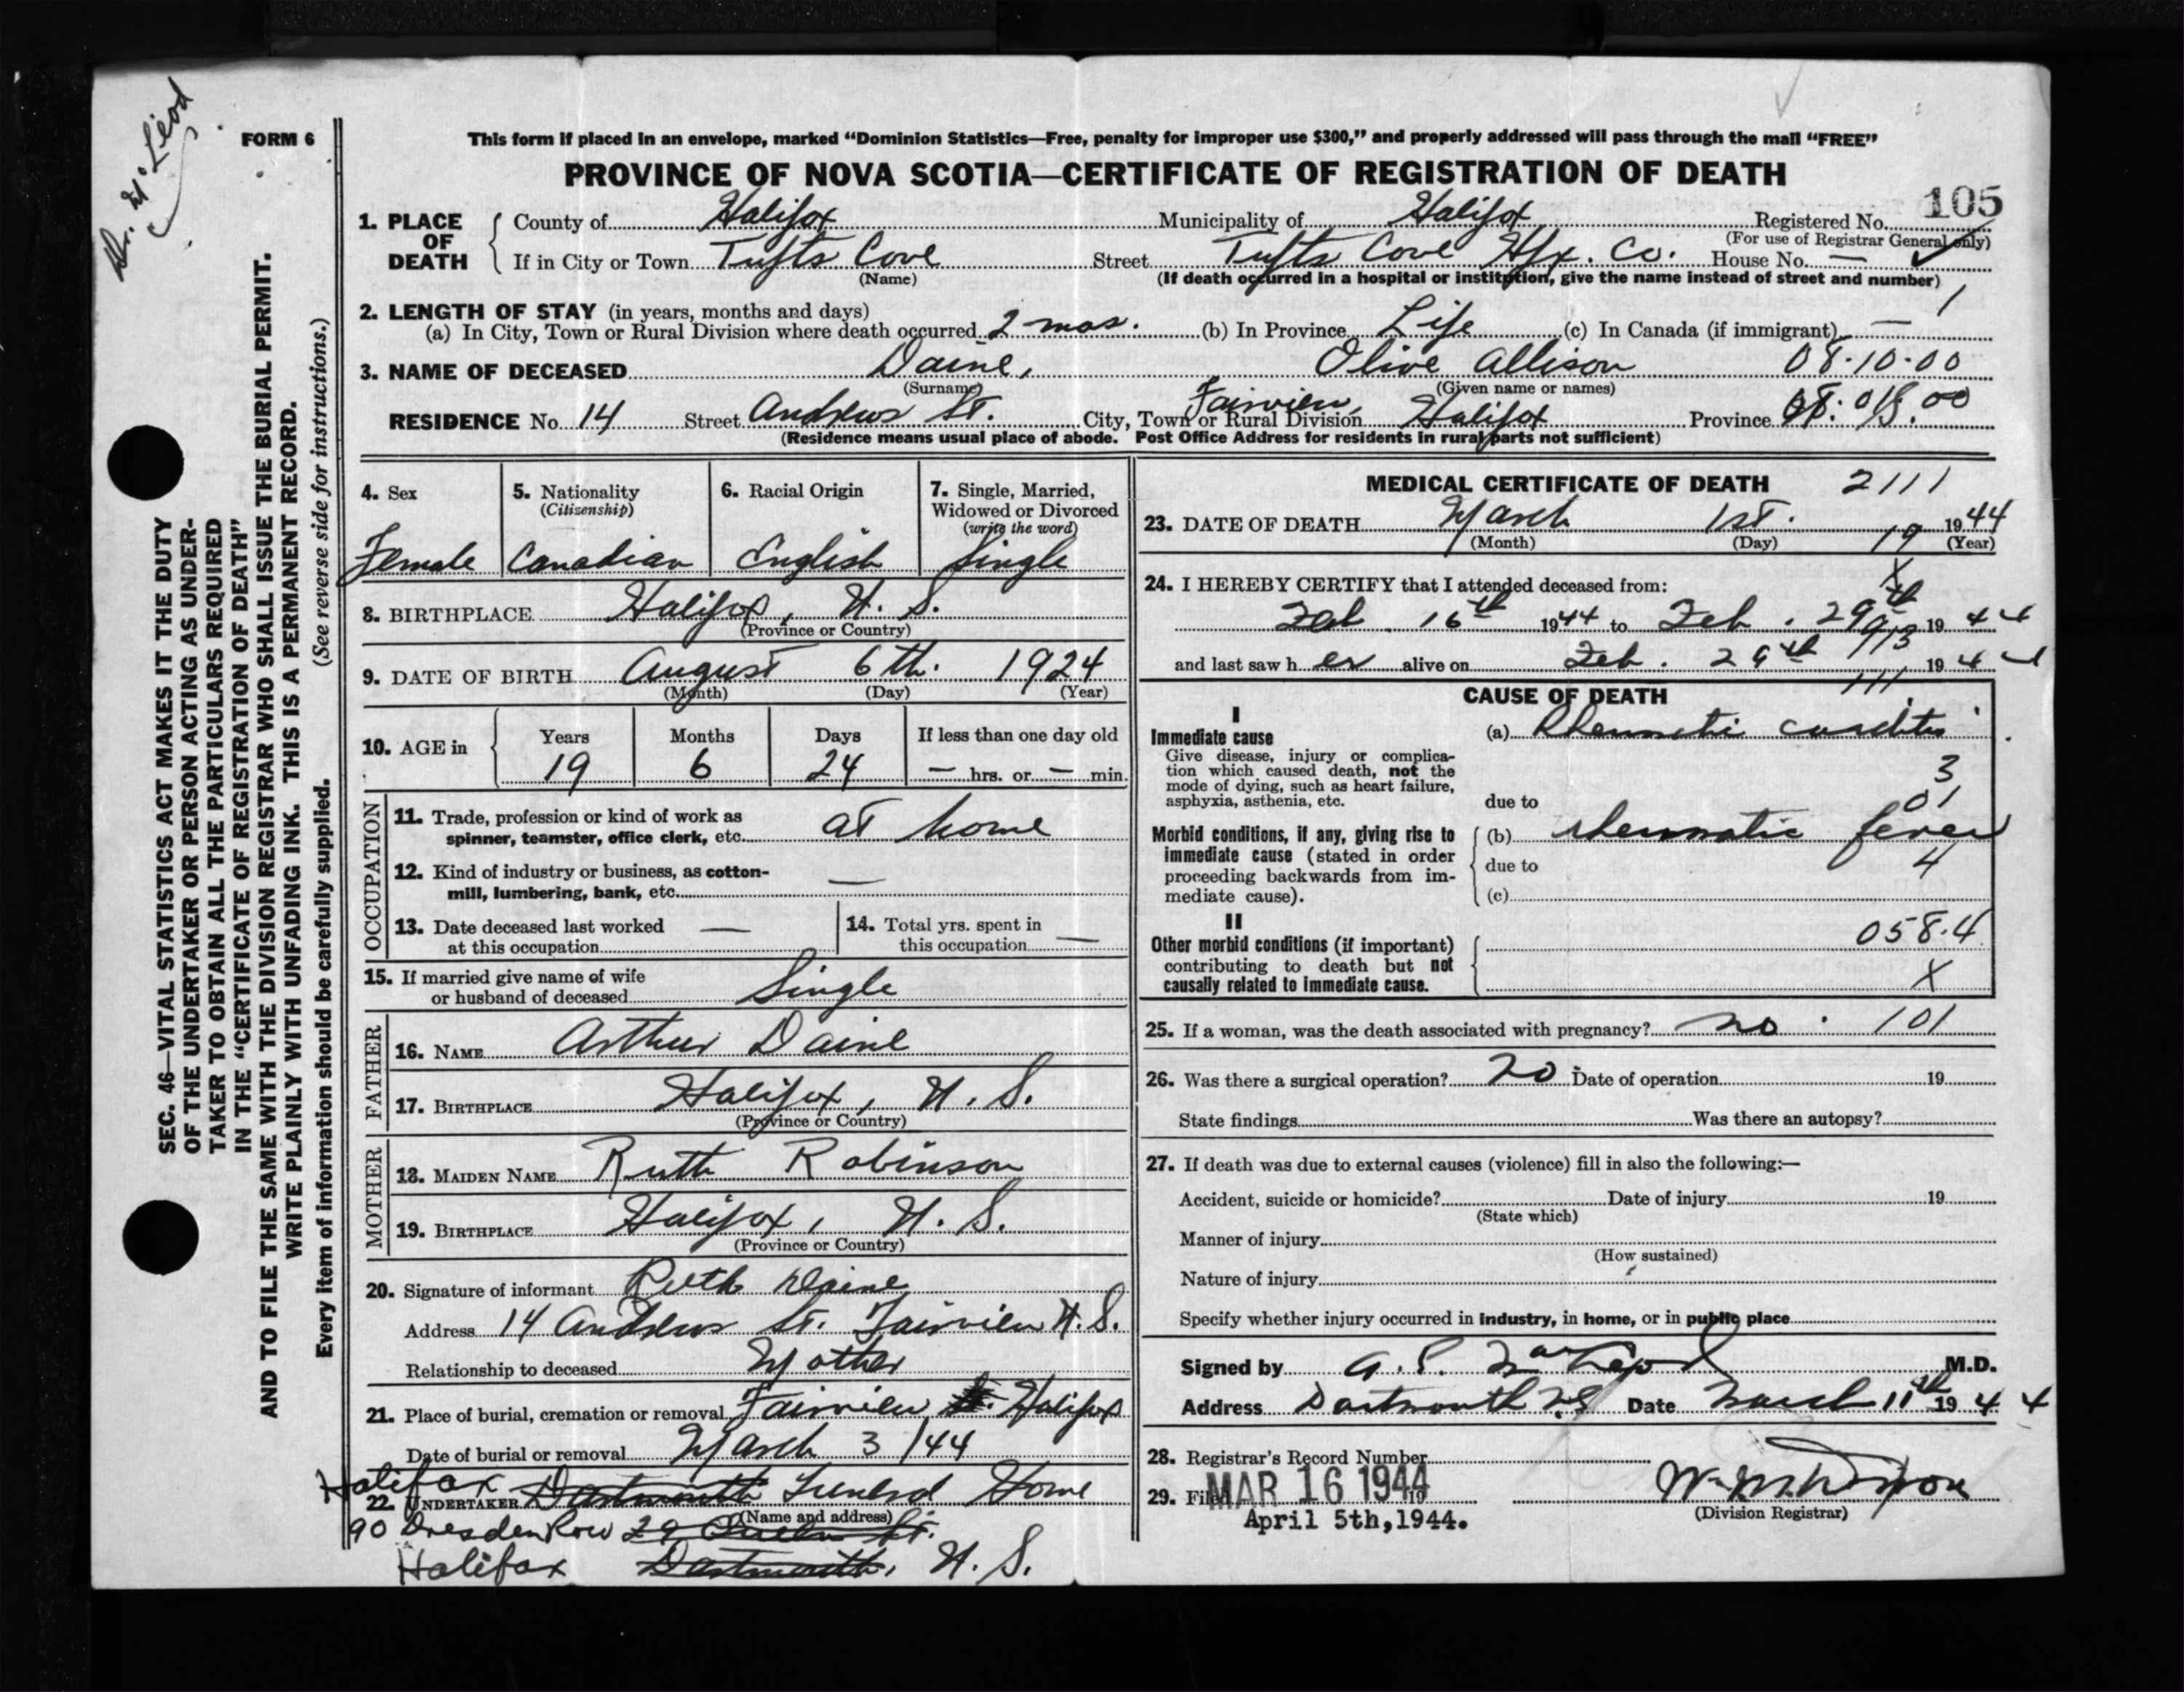 Dr. McLeod
FORM 6
This form if placed in an envelope, marked “Dominion Statistics—Free, penalty for improper use $300,” and properly addressed will pass through the mail “FREE”
PROVINCE OF NOVA SCOTIA—CERTIFICATE OF REGISTRATION OF DEATH
105
1. PLACE OF DEATH County of Halifax Municipality of Halifax Registered No.
(For use of Registrar General only)
If in City or Town Tufts Cove Street Tufts Cove Hfx. Co. House No. —
(Name) (If death occurred in a hospital or institution, give the name instead of street and number)
2. LENGTH OF STAY (in years, months and days) 1
(a) In City, Town or Rural Division where death occurred 2 mos. (b) In Province Life (c) In Canada (if immigrant) —
3. NAME OF DECEASED Daine, Olive Allison 08·10·00
(Surname) (Given name or names)
RESIDENCE No. 14 Street Andrews St. City, Town or Rural Division Fairview, Halifax Province
(Residence means usual place of abode. Post Office Address for residents in rural parts not sufficient)
4. Sex Female
5. Nationality (Citizenship) Canadian
6. Racial Origin English
7. Single, Married, Widowed or Divorced (write the word) Single
8. BIRTHPLACE Halifax, N. S.
(Province or Country)
9. DATE OF BIRTH August 6th. 1924
(Month) (Day) (Year)
10. AGE in Years 19 Months 6 Days 24 If less than one day old — hrs. or — min.
OCCUPATION
11. Trade, profession or kind of work as
spinner, teamster, office clerk, etc. at home
12. Kind of industry or business, as cotton-
mill, lumbering, bank, etc. —
13. Date deceased last worked
at this occupation —
14. Total yrs. spent in
this occupation —
15. If married give name of wife
or husband of deceased Single
FATHER
16. NAME Arthur Daine
17. BIRTHPLACE Halifax, N. S.
(Province or Country)
MOTHER
18. MAIDEN NAME Ruth Robinson
19. BIRTHPLACE Halifax, N. S.
(Province or Country)
20. Signature of informant Ruth Daine
Address 14 Andrews St. Fairview N. S.
Relationship to deceased Mother
21. Place of burial, cremation or removal Fairview, Halifax
Date of burial or removal March 3/44
Halifax
22. UNDERTAKER Dartmouth Funeral Home
(Name and address)
90 Dresden Row 29 Queen St.
Halifax Dartmouth, N. S.
MEDICAL CERTIFICATE OF DEATH 2111
23. DATE OF DEATH March 1st. 1944
(Month) (Day) (Year)
19
24. I HEREBY CERTIFY that I attended deceased from: X
Feb. 16th 1944 to Feb. 29th 1944
and last saw her alive on Feb. 29th 1944
CAUSE OF DEATH
I
Immediate cause
Give disease, injury or complica-
tion which caused death, not the
mode of dying, such as heart failure,
asphyxia, asthenia, etc.
(a) Rheumatic carditis
3
due to 01
Morbid conditions, if any, giving rise to
immediate cause (stated in order
proceeding backwards from im-
mediate cause).
(b) rheumatic fever
due to 4
(c)
II
Other morbid conditions (if important)
contributing to death but not
causally related to immediate cause.
058.4
X
25. If a woman, was the death associated with pregnancy? no. 101
26. Was there a surgical operation? No Date of operation 19
State findings Was there an autopsy?
27. If death was due to external causes (violence) fill in also the following:—
Accident, suicide or homicide? Date of injury 19
(State which)
Manner of injury
(How sustained)
Nature of injury
Specify whether injury occurred in industry, in home, or in public place
Signed by M.D.
Address Dartmouth NS Date March 11th 1944
28. Registrar's Record Number
29. Filed MAR 16 1944 19
(Division Registrar)
April 5th, 1944.
SEC. 46—VITAL STATISTICS ACT MAKES IT THE DUTY
OF THE UNDERTAKER OR PERSON ACTING AS UNDER-
TAKER TO OBTAIN ALL THE PARTICULARS REQUIRED
IN THE “CERTIFICATE OF REGISTRATION OF DEATH”
AND TO FILE THE SAME WITH THE DIVISION REGISTRAR WHO SHALL ISSUE THE BURIAL PERMIT.
WRITE PLAINLY WITH UNFADING INK. THIS IS A PERMANENT RECORD.
Every item of information should be carefully supplied. (See reverse side for instructions.)